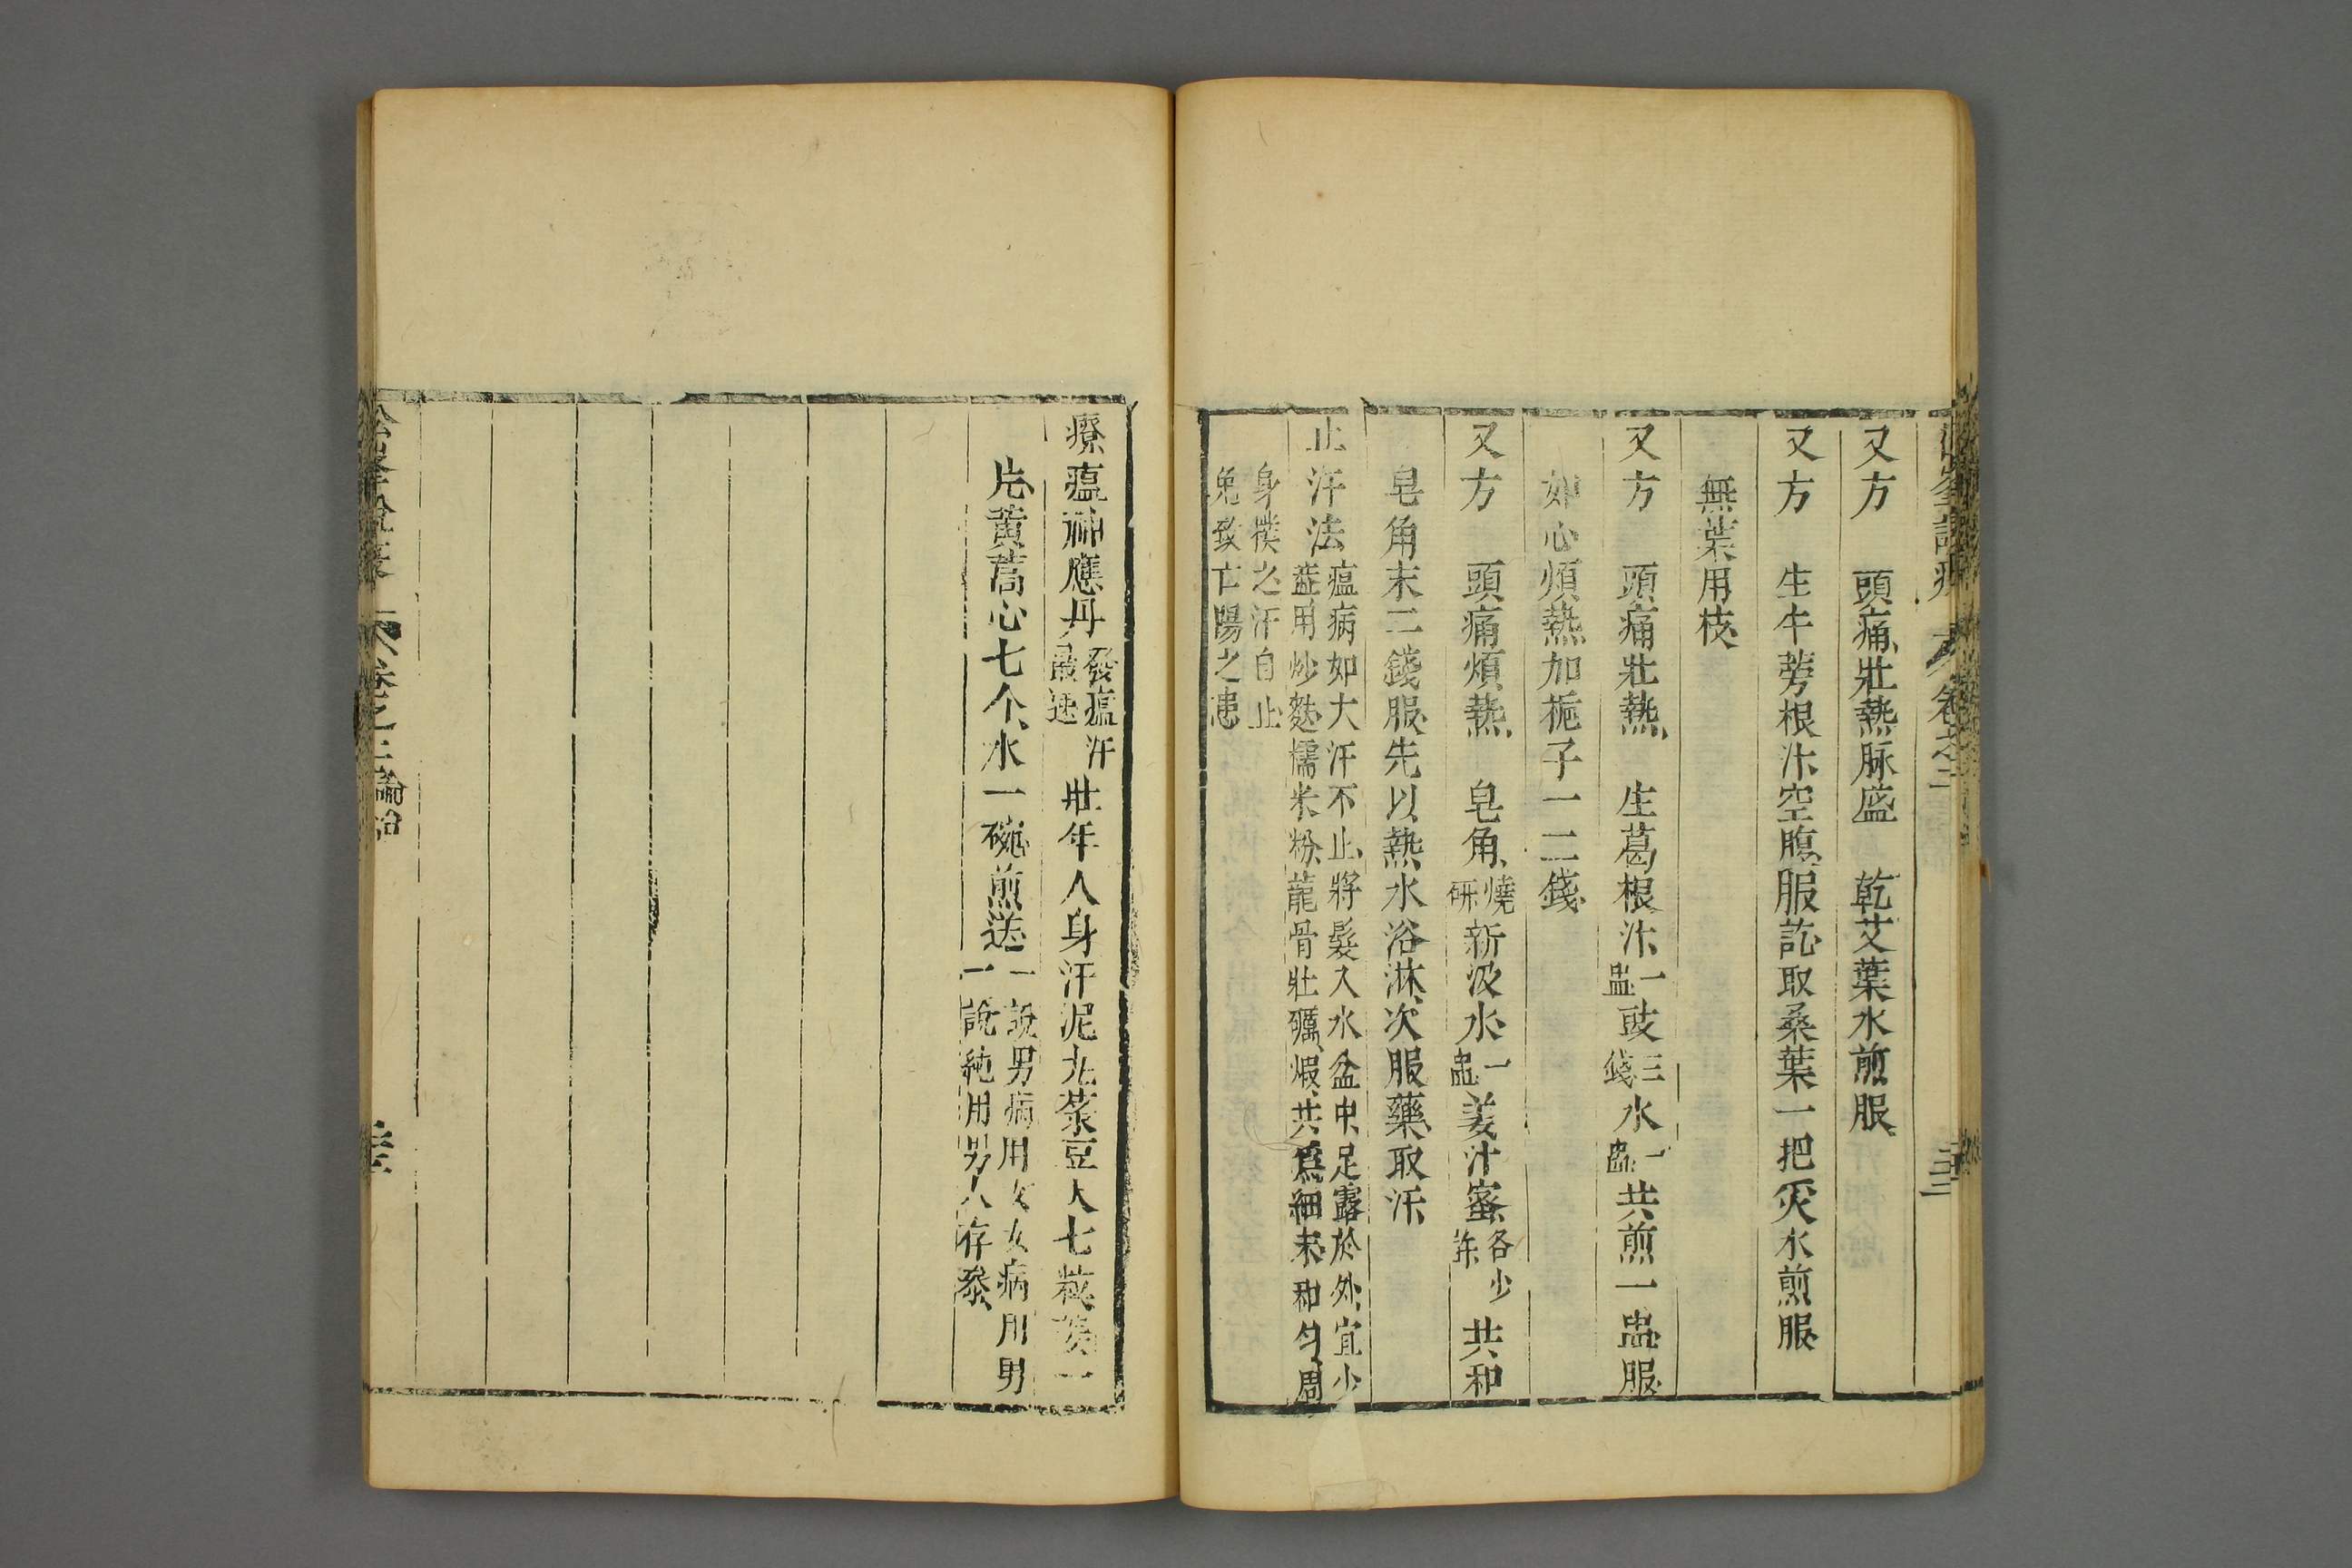 卷之二
三十三
又方 頭痛壯熱脉盛 乾艾葉水煎服
又方 生牛蒡根汁空腹服訖取桑葉一把灸水煎服
無葉用枝
又方 頭痛壯熱 生葛根汁一盅豉三錢水一盅共煎一盅服
如心煩熱加梔子一二錢
又方 頭痛煩熱 皂角燒研新汲水一盅姜汁蜜各少許共和
皂角末二錢服先以熱水浴淋次服藥取汗
止汗法瘟病如大汗不止將髮入水盆中足露於外宜少
盖用炒麩糯米粉龍骨壯礪煅共爲細末和勻周
身撲之汗自止
免致亡陽之患
療瘟神應丹發瘟汗最速 壯年人身汗泥丸菉豆大七粒一
片黄蒿心七个水一碗煎送一說男病用女女病用男
一說純用男人存叅
論治